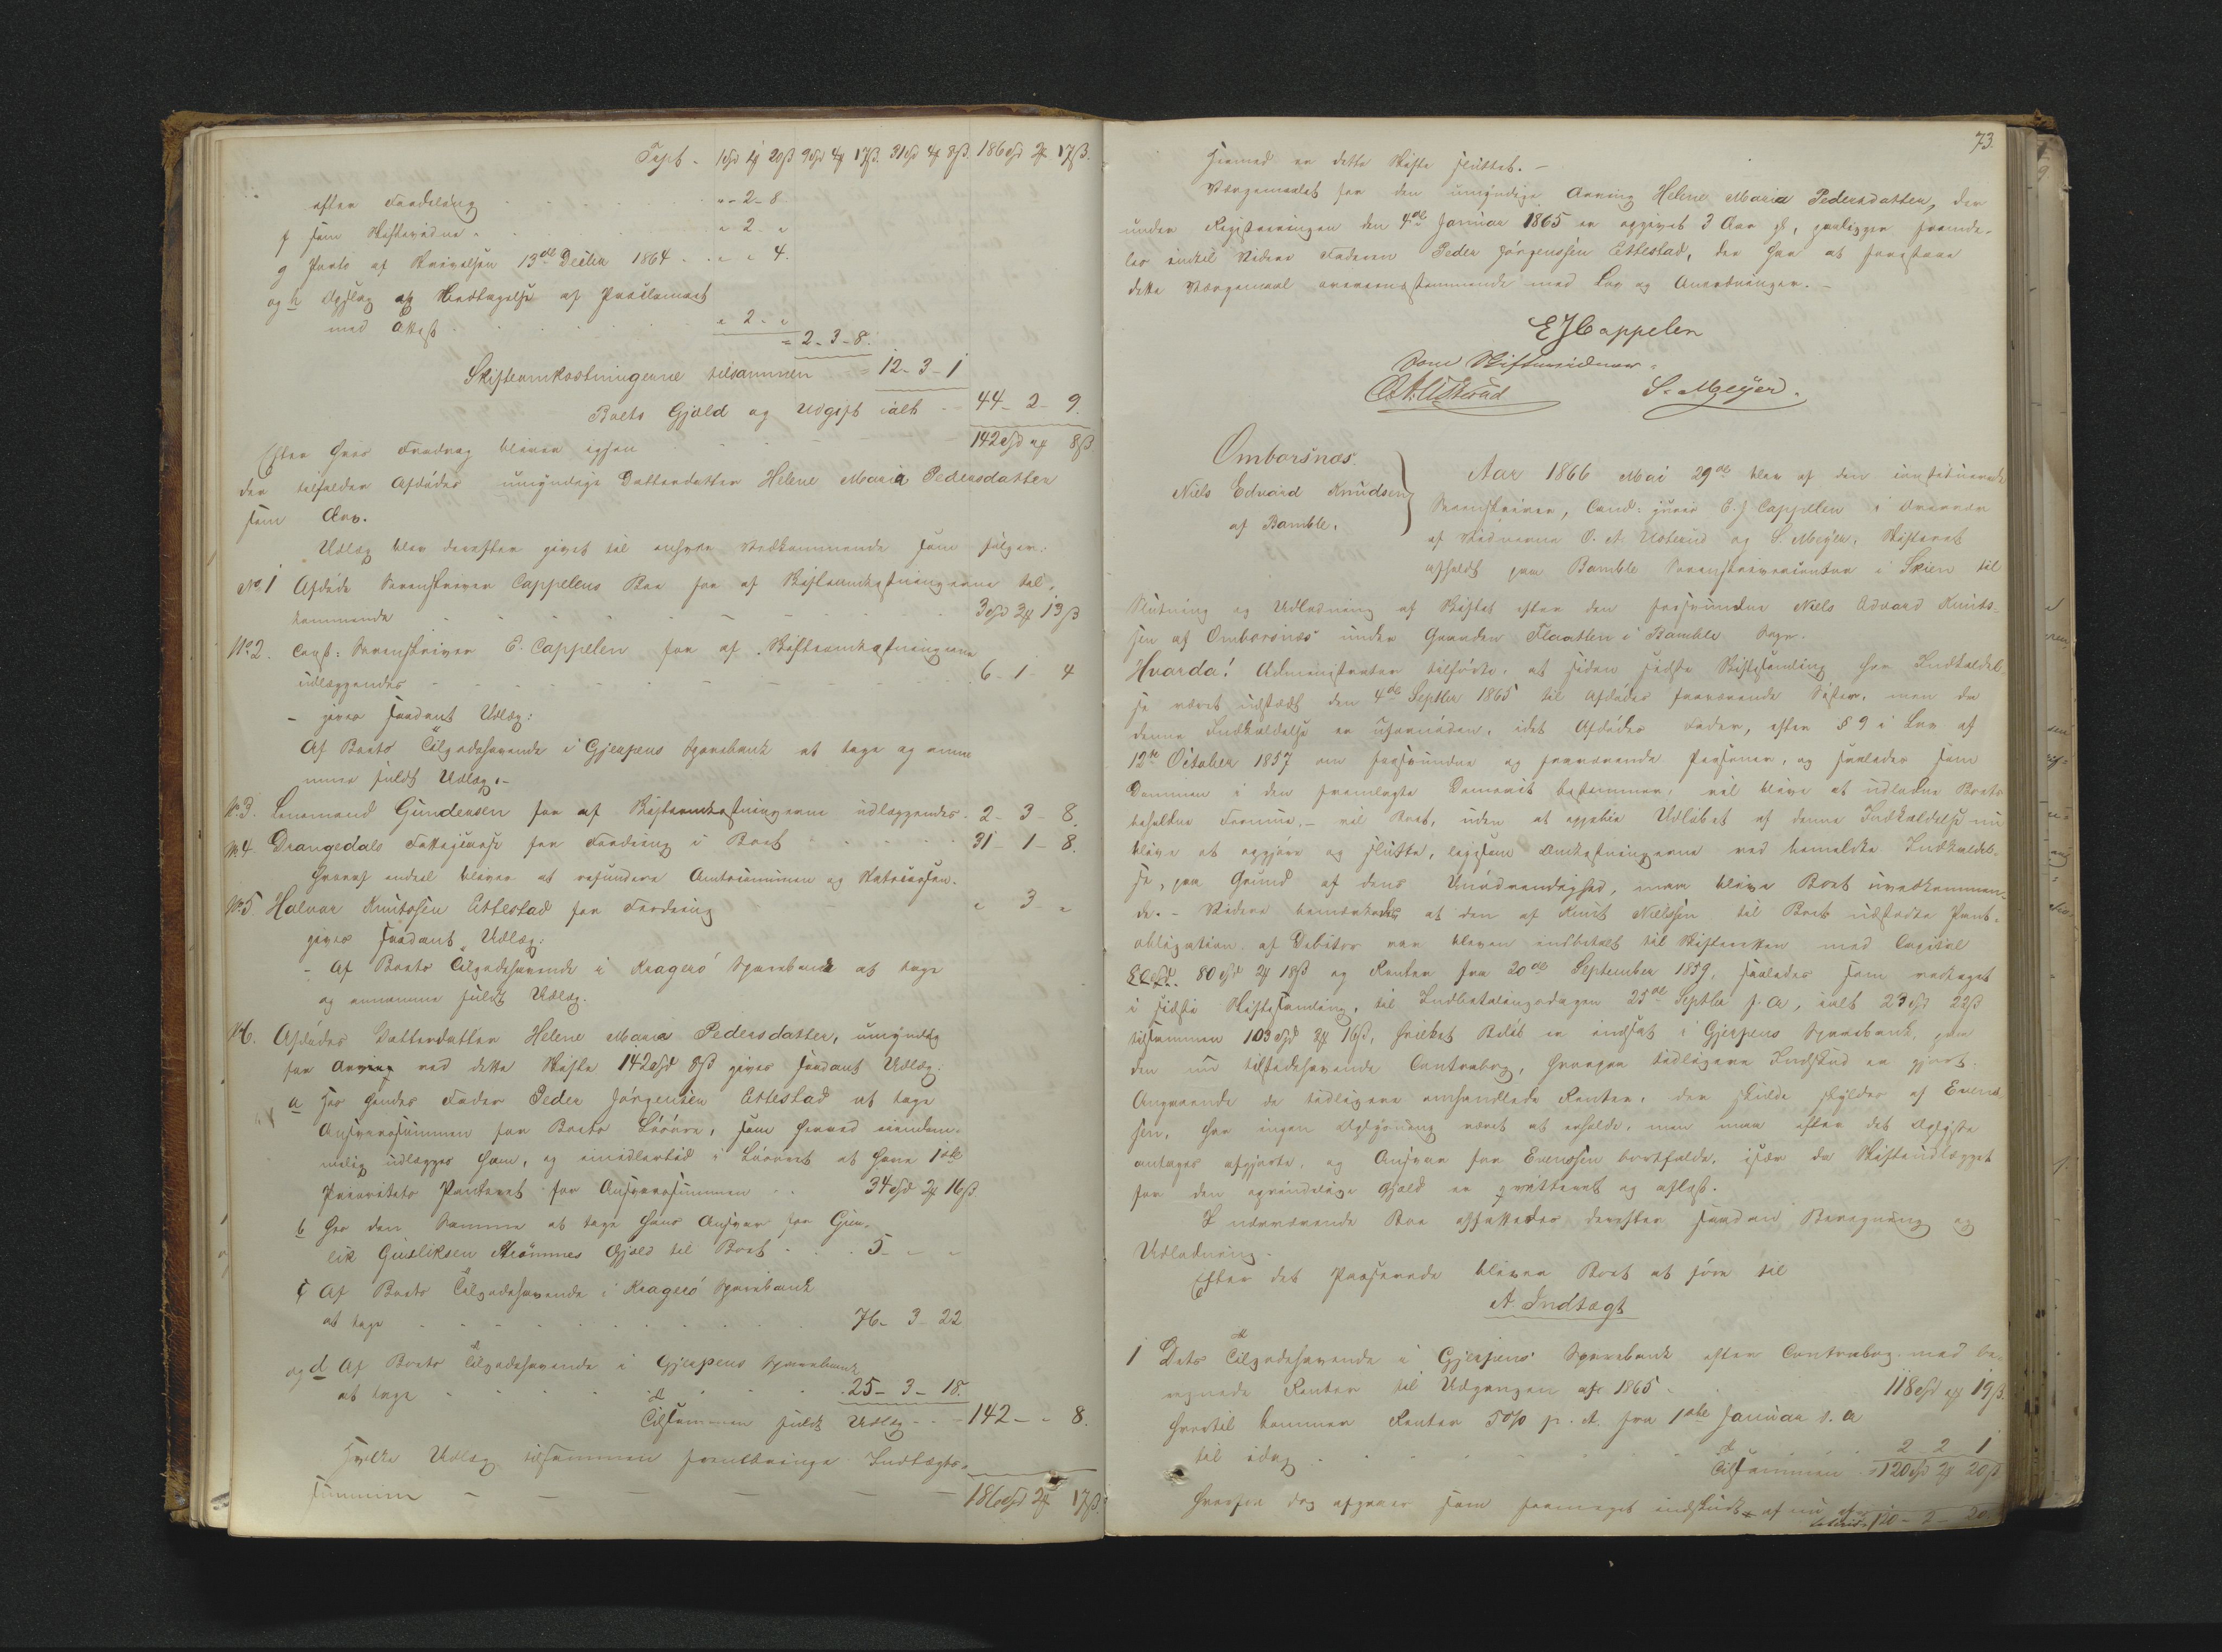 Tspt - 1 Spd 1 ℔ 20 ß 9 Spd 4 ℔ 17 ß. 31 Spd 4 ℔ 8 ß. 186 Spd 2 ℔ 17 ß.
efter Fordeling " - 2 - 8
f som Skiftevidne " 2 "
g Porto af Skrivelsen 13de Decbr 1864 " " 4.
og h Opslag og Modtagelse af Proclamaet
med Attest " 2 - "
= 2 - 3 - 8.
Skifteomkostningerne tilsammen = 12 - 3 - 1
Boets Gjæld og Udgift ialt - 44 - 2 - 9.
Efter hvis Fradrag bliver igjen 142 Spd " ℔ 8 ß
der tilfalder Afdødes umyndige Datterdatter Helene Maria Pedersdatter
som Arv.
Udlæg blev derefter givet til enhver Vedkommende som følger:
No 1 Afdøde Sorenskriver Cappelens Boe for af Skifteomkostningerne til-
kommende 3 Spd 3 ℔ 13 ß
No 2. Const: Sorenskriver E. Cappelen for af Skifteomkostningerne
udlæggendes 6 - 1 - 4
- gives saadant Udlæg:
Af Boets Tilgodehavende i Gjerpens Sparebank at tage og anna-
mme fuldt Udlæg. -
No 3. Lensmand Gundersen for af Skifteomkostningerne udlæggendes - 2 - 3 - 8.
No 4 Drangedals Fattigkasse for Fordring i Boet 31 - 1 - 8.
hvoraf endeel bliver at refundere Amtscommunen og Statscassen.
No 5 Halvor Knutssen Ettestad for Fordring " 3 - "
gives saadant Udlæg:
- Af Boets Tilgodehavende i Kragerø Sparebank at tage
og annamme fuldt Udlæg.
No 6. Afdødes Datterdatter Helene Maria Pedersdatter, umyndig
for Arving ved dette Skifte 142 Spd 8 ß gives saadant Udlæg:
a Hos hendes Fader Peder Jørgensen Ettestad at tage
Ansvarssummen for Boets Løsøre, som herved eiendom-
melig udlægges ham, og imidlertid i Løsøret at have 1ste
Prioritets Panteret for Ansvarssummen 34 Spd 2 ℔ 16 ß
b Hos den Samme at tage hans Ansvar for Gun-
lik Gunliksen Strømmes Gjæld til Boet 5 - " - "
c Af Boets Tilgodehavende i Kragerø Sparebank
at tage 76 - 3 - 22
og d Af Boets Tilgodehavende i Gjerpens Sparebank
at tage 25 - 3 - 18.
Tilsammen fuldt Udlæg - 142 - " 8.
Hvilke Udlæg tilsammen frembringe Indtægts-
summen 186 Spd 2 ℔ 17 ß.
73.
Hermed er dette Skifte sluttet. -
Værgemaalet for den umyndige Arving Helene Maria Pedersdatter, der
under Registreringen den 4de Januar 1865 er opgivet 3 Aar gl, paaligger fremde-
les indtil Videre Faderen Peder Jørgenssen Ettestad, der har at forestaae
dette Værgemaal overensstemmende med Lov og Anordninger. -
EJCappelen
Som Skiftevidner.
O.A. Ulsterud S. Meyer.
Omborsnæs.
Niels Edvard Knudsen
af Bamble.
Aar 1866 Mai 29de blev af den constituerede
Sorenskriver, Cand: juris E. J Cappelen i Overvær
af Vidnerne O. A. Ulsterud og S. Meyer, Skifteret
afholdt paa Bamble Sorenskrivercontor i Skien til
Slutning og Udlodning af Skiftet efter den forsvundne Niels Edvard Knuts-
sen af Omborsnæs under Gaarden Flaatten i Bamble Sogn.
Hvorda! Administrator tilførte, at siden sidste Skiftesamling har Indkaldel-
se været udstædt den 4de Septbr 1865 til Afdødes fraværende Søster, men da
denne Indkaldelse er ufornøden, idet Afdødes Fader, efter § 9 i Lov af
12te October 1857 om forsvundne og fraværende Personer, og saaledes som
Dommen i den fremlagte Domsact bestemmer, vil blive at udlodne Boets
beholdne Formue, - vil Boet, uden at oppebie Udløbet af denne Indkaldelse nu
blive at opgjøre og slutte, ligesom Omkostningerne ved bemeldte Indkaldel-
se, paa Grund af dens Unødvendighed, maa blive Boet uvedkommen-
de. - Videre bemærkedes at den af Knut Nielssen til Boet udstædte Pant-
obligation af Debitor var bleven indbetalt til Skifteretten med Capital
80 Spd 2 ℔ 18 ß og Renter fra 20de September 1859, saaledes som vedtaget
i sidste Skiftesamling, til Indbetalingsdagen 25de Septbr f. A, ialt 23 Spd 22 ß
tilsammen 103 Spd 3 ℔ 16 ß, hvilket Beløb er indsat i Gjerpens Sparebank, paa
den nu tilstedehavende Contrabog, hvorpaa tidligere Indskud er gjort.
Angaaende de tidligere omhandlede Renter, der skulde skyldes af Evens-
sen, har ingen Oplysning været at erholde, men maa efter det Oplyste
antages afgjorte, og Ansvar for Evenssen bortfalde, især da Skifteudlægget
for den oprindelige Gjæld er qvitteret og aflyst.
I nærværende Boe affattedes derefter saadan Beregning og
Udlodning.
Efter det Passerede bliver Boet at føre til
A. Indtægt
1 Dets Tilgodehavende i Gjerpens Sparebank efter Contrabog med be-
regnede Renter til Udgangen af 1865 118 Spd " ℔ 19 ß.
hvortil kommer Renter 5 % p. A. fra 1ste Januar d. A
til idag 2 - 2 - 1
Tilsammen 120 Spd 2 ℔ 20 ß
120 - 2 - 20